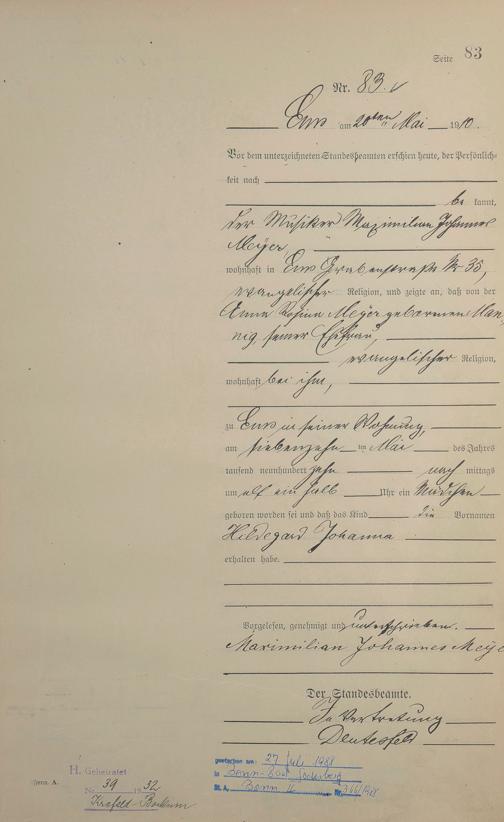 Seite 83
Nr. 83.
Ems am 20ten Mai 1910.
Vor dem unterzeichneten Standesbeamten erschien heute, der Persönlich-
keit nach
be kannt,
der Musiker Maximilian Johannes
Meyer,
wohnhaft in Ems Grabenstraße No 35,
evangelischer Religion, und zeigte an, daß von der
Anna Rosina Meyer geborenen Man
nig, seiner Ehefrau,
evangelischer Religion,
wohnhaft bei ihm,
zu Ems in seiner Wohnung,
am siebenzehn ten Mai des Jahres
tausend neunhundert zehn nach mittags
um elf ein halb Uhr ein Mädchen
geboren worden sei und daß das Kind die Vornamen
Hildegard Johanna
erhalten habe.
Vorgelesen, genehmigt und unterschrieben.
Maximilian Johannes Meye
Der Standesbeamte.
In Vertretung
H. Geheiratet
Nr. 39 1932
Krefeld-
gestorben am: 27. Juli 1988
in Bonn-Bad Godesberg
St. A. Bonn Nr.